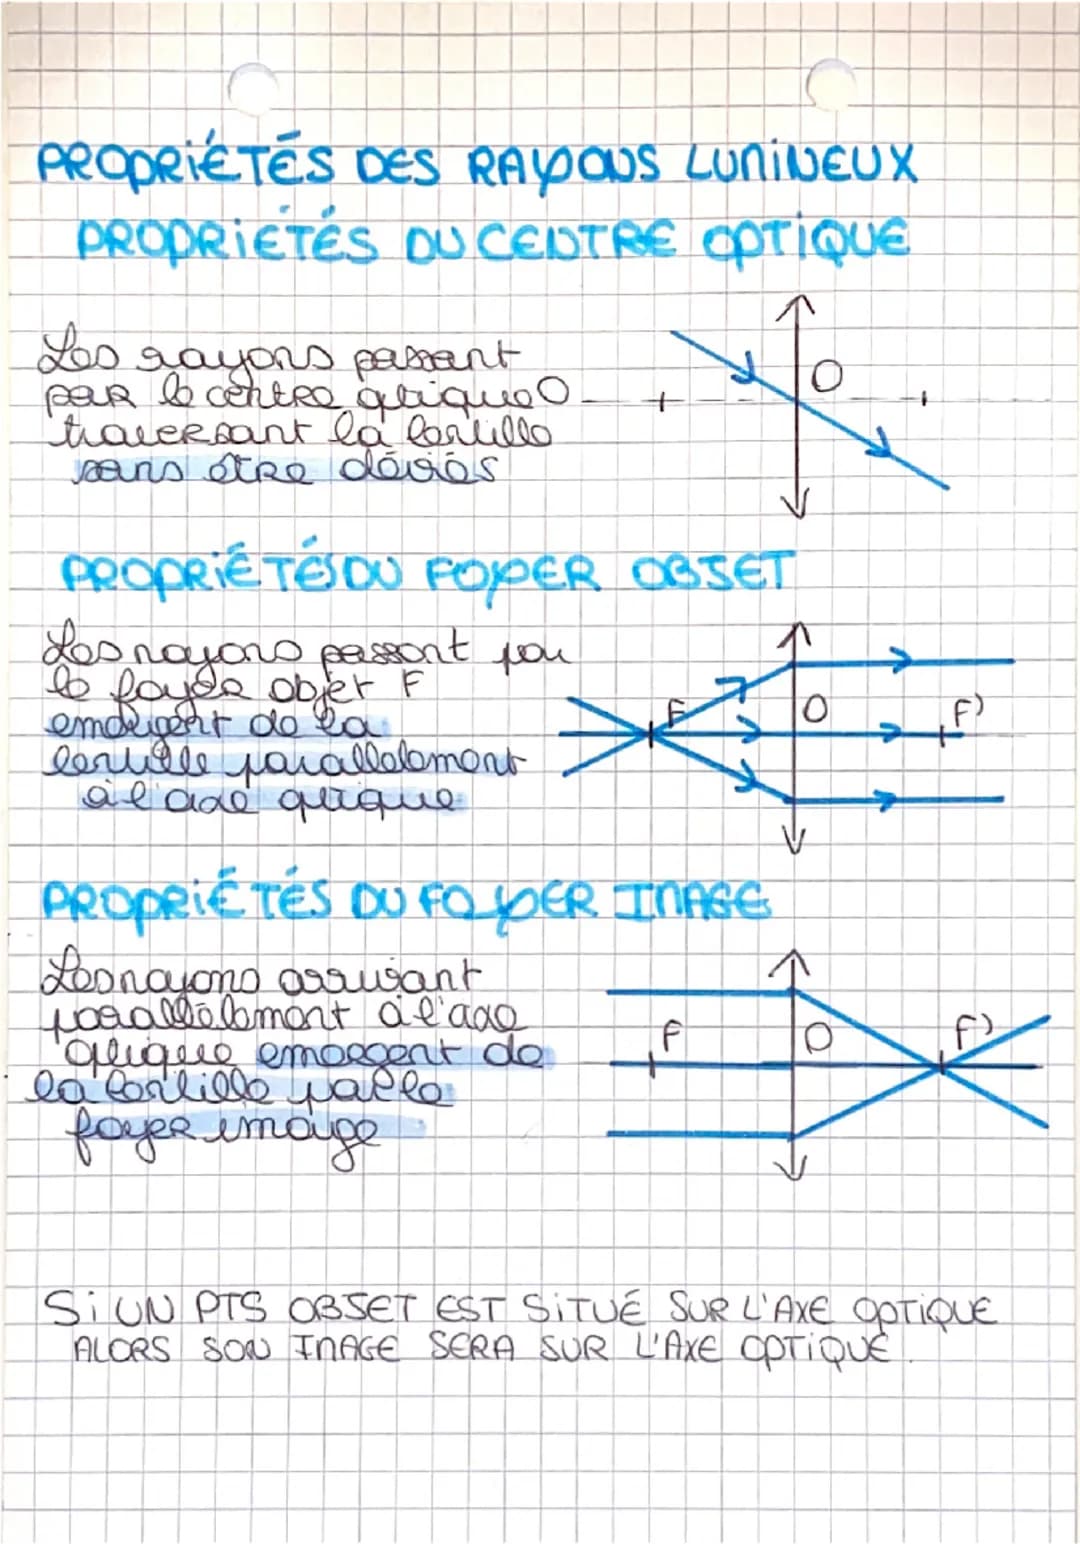 PROPRIÉTÉS DES RAYONS LUMINEUX
PROPRIÉTÉS DU CENTRE OPTIQUE
Les rayons passant
par le centre optique O
traversant la lentille
sans être déviés
O
PROPRIÉTÉS DU FOYER OBJET
Les rayons passant par
le foyer objet F
emergent de la
lentille parallelement
à l'axe optique
F
O
F'
PROPRIÉTÉS DU FOYER IMAGE
Les rayons arrivant
parallèlement à l'axe
optique emergent de
la lentille par le
foyer image
F
O
F'
Si UN PTS OBJET EST SITUÉ SUR L'AXE OPTIQUE
ALORS SON IMAGE SERA SUR L'AXE OPTIQUE.